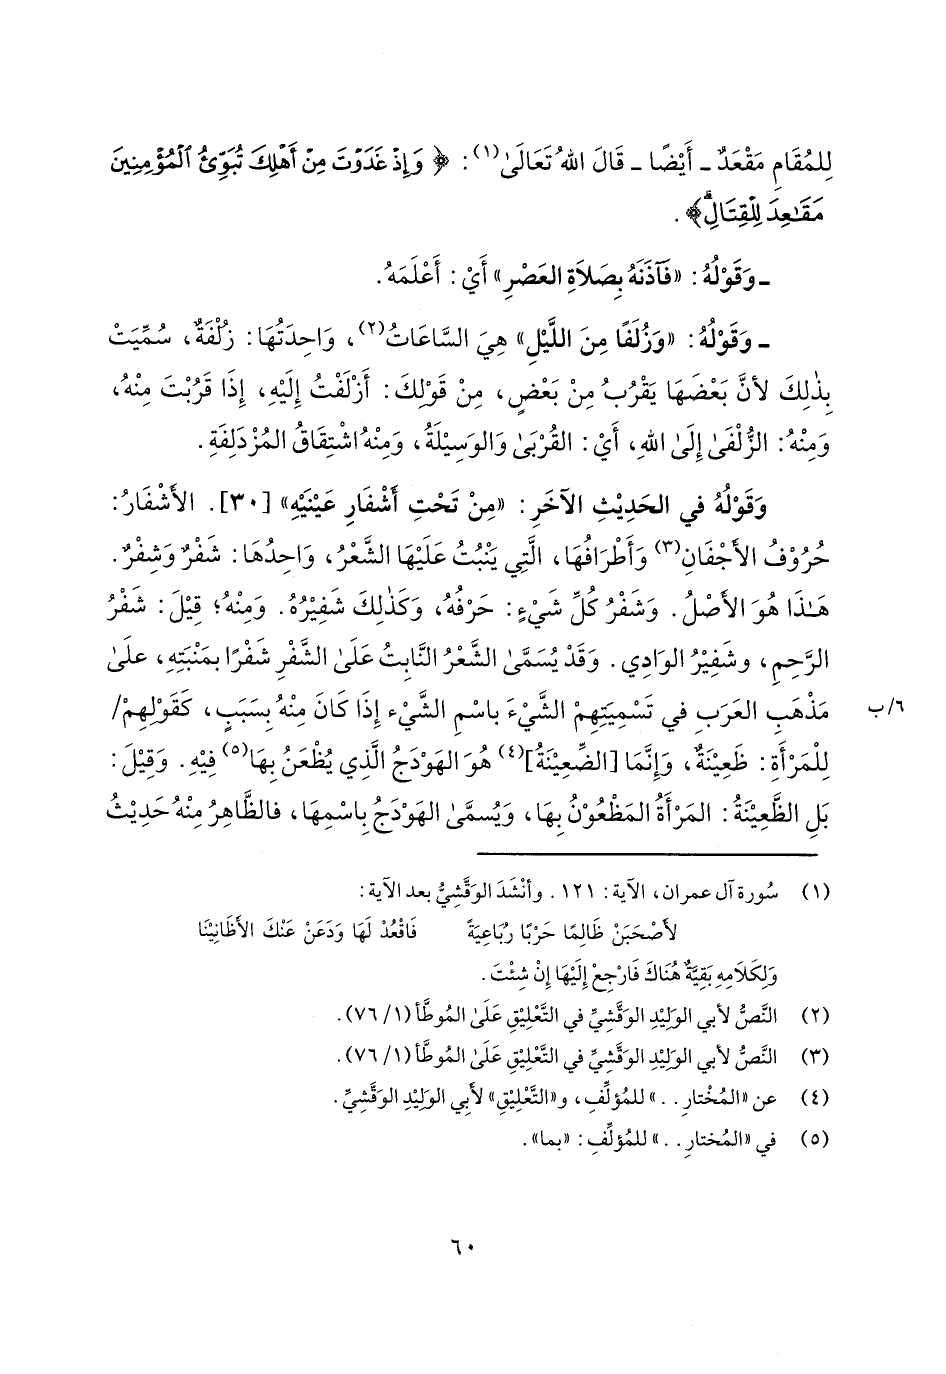 لِلمُقَامِ مَقْعَدٌ ـ أَيْضًا ـ قَالَ اللهُ تَعَالَىٰ(١): ﴿ وَإِذْ غَدَوْتَ مِنْ أَهْلِكَ تُبَوِّئُ ٱلْمُؤْمِنِينَ
مَقَـٰعِدَ لِلْقِتَالِۗ﴾ .
ـ وَقَوْلُهُ: «فَآذَنَهُ بِصَلاَةِ العَصْرِ» أَيْ: أَعْلَمَهُ.
ـ وَقَوْلُهُ: «وَزُلَفًا مِنَ اللَّيْلِ» هِيَ السَّاعَاتُ(٢)، وَاحِدَتُهَا: زُلْفَةٌ، سُمِّيَتْ
بِذٰلِكَ لأنَّ بَعْضَهَا يَقْرُبُ مِنْ بَعْضٍ، مِنْ قَوْلِكَ: أَزْلَفْتُ إِلَيْهِ، إِذَا قَرُبْتَ مِنْهُ،
وَمِنْهُ: الزُّلْفَىٰ إِلَىٰ اللهِ، أَيْ: القُرْبَىٰ وَالوَسِيْلَةُ، وَمِنْهُ اشْتِقَاقُ المُزْدَلِفَةِ.
وَقَوْلُهُ في الحَدِيْثِ الآخَرِ: «مِنْ تَحْتِ أَشْفَارِ عَيْنَيْهِ» [٣٠]. الأَشْفَارُ:
حُرُوْفُ الأَجْفَانِ(٣) وَأَطْرَافُهَا، الَّتِي يَنْبُتُ عَلَيْهَا الشَّعْرُ، وَاحِدُهَا: شَفْرٌ وَشِفْرٌ.
هَـٰذَا هُوَ الأَصْلُ. وَشَفْرُ كُلِّ شَيْءٍ: حَرْفُهُ، وَكَذٰلِكَ شَفِيْرُهُ. وَمِنْهُ؛ قِيْلَ: شَفْرُ
الرَّحِمِ، وشَفِيْرُ الوَادِي. وَقَدْ يُسَمَّىٰ الشَّعْرُ النَّابِتُ عَلَىٰ الشَّفْرِ شَفْرًا بِمَنْبَتِهِ، علىٰ
مَذْهَبِ العَرَبِ في تَسْمِيَتِهِمْ الشَّيْءَ بَاسْمِ الشَّيْء إِذَا كَانَ مِنْهُ بِسَبَبٍ، كَقَوْلِهِمْ/ ٦/ب
لِلْمَرْأَةِ: ظَعِيْنَةٌ، وَإِنَّمَا [الضِّعِيْنَةُ](٤) هُوَ الهَوْدَجُ الَّذِي يُظْعَنُ بِهَا(٥) فِيْهِ. وَقِيْلَ:
بَلِ الظَّعِيْنَةُ: المَرْأَةُ المَظْعُوْنُ بِهَا، وَيُسمَّىٰ الهَوْدَجُ بِاسْمِهَا، فَالظَّاهِرُ مِنْهُ حَدِيْثُ
(١) سُورة آل عمران، الآية: ١٢١. وأنْشَدَ الوَقَّشِيُّ بعد الآية:
لأَصْحَبَنْ ظَالِمًا حَرْبًا رُبَاعِيَةً فَاقْعُدْ لَهَا وَدَعَنْ عَنْكَ الأَظَانِيْنَا
وَلِكَلَامِهِ بَقِيَّةٌ هُنَاكَ فَارْجِعْ إِلَيْهَا إِنْ شِئْتَ.
(٢) النَّصُّ لأبي الوَلِيْدِ الوَقَّشِيِّ في التَّعْلِيْقِ عَلَىٰ المُوطَّأ (١/ ٧٦).
(٣) النَّصُّ لأبي الوَلِيْدِ الوَقَّشِيِّ في التَّعْلِيْقِ عَلَىٰ المُوطَّأ (١/ ٧٦).
(٤) عن «المُخْتارِ..» للمُؤلِّفِ، و«التَّعْلِيْقِ» لأبي الوَلِيْدِ الوَقَّشِيِّ.
(٥) في «المُختارِ..» للمُؤلِّفِ: «بما».
٦٠